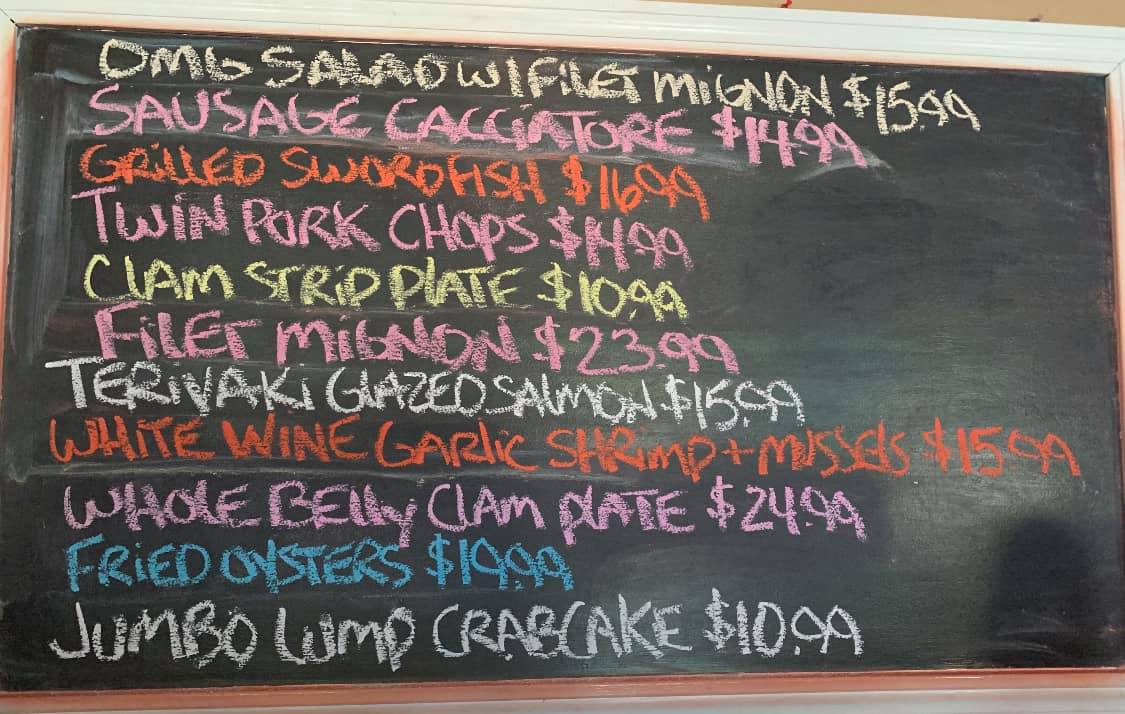 OMG SALAD W/ FILET MIGNON $15.99
SAUSAGE CACCIATORE $14.99
GRILLED SWORDFISH $16.99
TWIN PORK CHOPS $14.99
CLAM STRIP PLATE $10.99
FILET MIGNON $23.99
TERIYAKI GLAZED SALMON $15.99
WHITE WINE GARLIC SHRIMP + MUSSELS $15.99
WHOLE BELLY CLAM PLATE $24.99
FRIED OYSTERS $19.99
JUMBO LUMP CRABCAKE $10.99